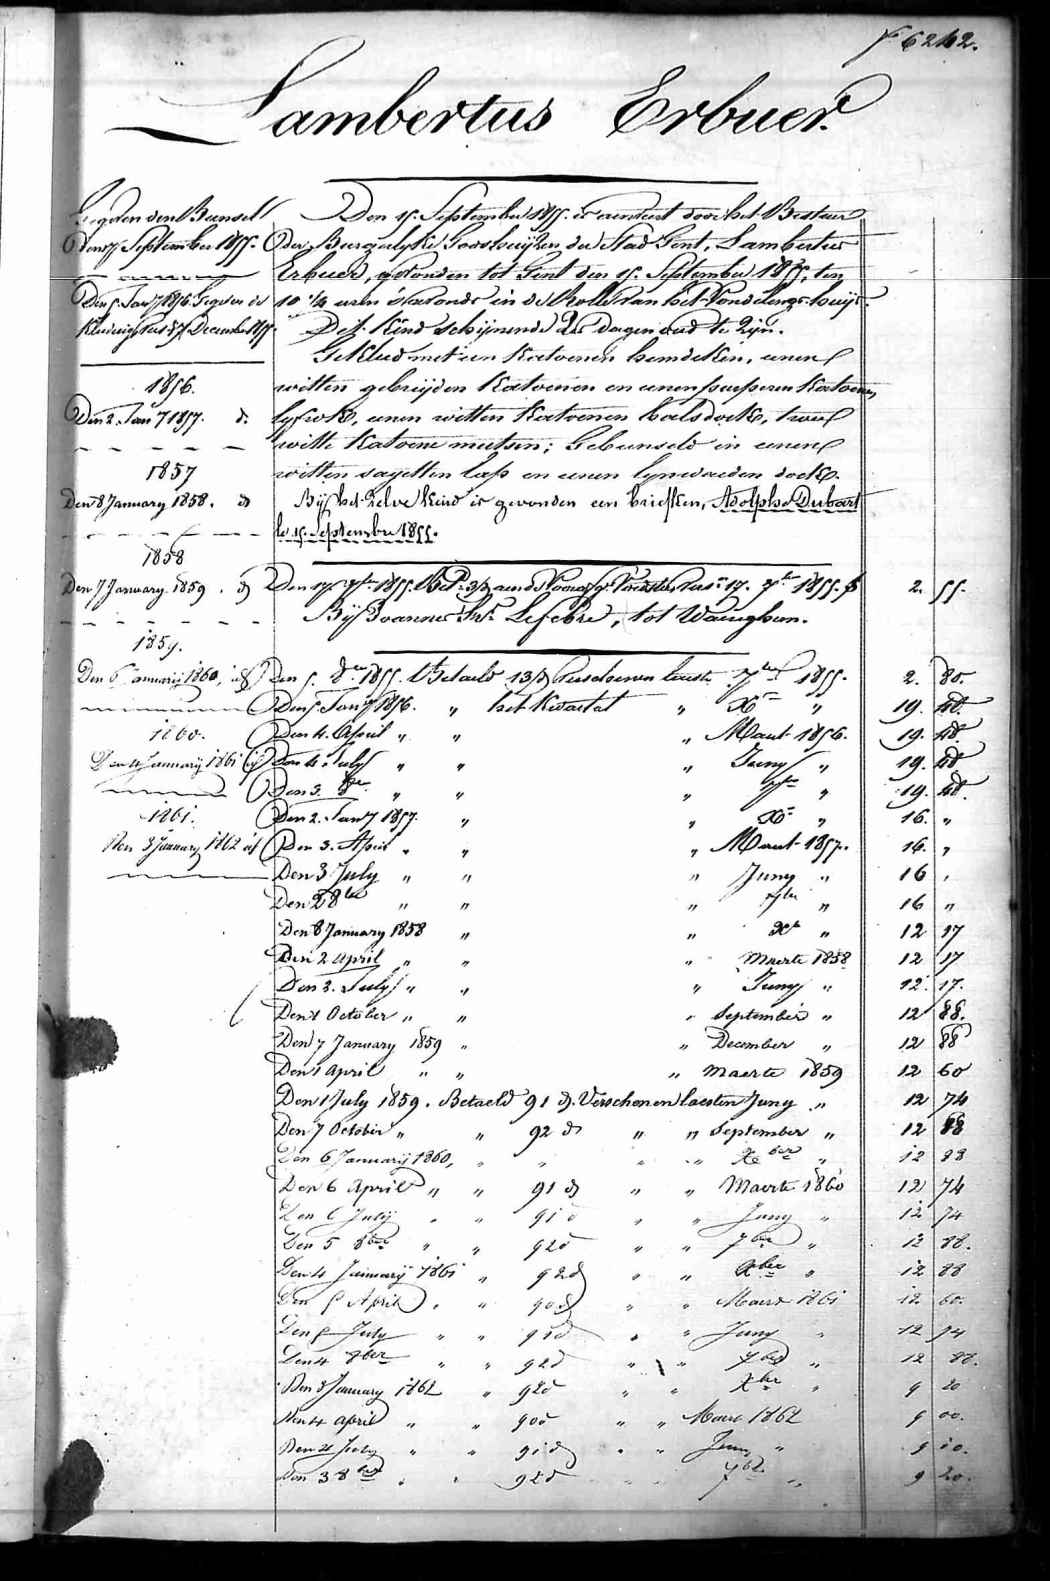 f 6242.
Lambertus Erbuer.
Gegeven den Bunsel
Den 17 September 1855.
Den 5 Jany 1856. Gegeven de
Kleeding tus 31 December 1855.
1856.
Den 2. Jany 1857. d.
1857
Den 8 January 1858. d
1858
Den 7 January 1859. d
1859.
Den 6 January 1860, id
1860.
Den 4 January 1861 id
1861.
Den 3 January 1862 id
Den 15. September 1855. is aenveert door het Bestuer
der Burgerlyke Godshuijzen der Stad Gent, Lambertus
Erbuer, gevonden tot Gent den 15. September 1855, ten
10 1/4 uren s'avonds in de Rolle van het Vondelings-huijs.
Dit Kind schijnende 2 dagen oud te zijn.
Gekleed met een Katoenen hemdeken, eenen
witten gebreijden Katoenen en eenen purperen Katoenen
lyfrok, eenen witten Katoenen halsdoek, twee
witte Katoene mutsen; Gebunseld in eenen
witten sayetten lap en eenen lynwaeden doek.
Bij het zelve kind is gevonden een briefken, Adolphe Dubart
le 15. Septembre 1855.
Den 17. 7ber 1855. 17. 7ber 1855. 2. 55.
Bij Joannes Lefebre, tot Waeughem.
Den 5. 8er 1855. Betaeld 13 d Verschenen leest 7ber 1855. 2. 80.
Den 5 Jany 1856. " het Kwartael " Xer " 19. 48.
Den 4. April " " " Maert 1856. 19. 48.
Den 4. July " " " Juny " 19. 48
Den 3. 8ber " " " 7ber " 19. 48.
Den 2. Jany 1857. " " Xr " 16. "
Den 3. April " " " Maert 1857. 16. "
Den 3 July " " " Juny " 16 "
Den 2 8ber " " " 7ber " 16 "
Den 8 January 1858 " " Xr " 12 17
Den 2 April " " " Maerte 1858 12 17
Den 3. July " " " Juny " 12. 17.
Den 1 October " " " September " 12 88.
Den 7 January 1859 " " December " 12 88
Den 1 April " " " Maerte 1859 12 60
Den 1 July 1859. Betaeld 91 d. Verschenen laesten Juny " 12 74
Den 7 October " " 92 d " " September " 12 88
Den 6 January 1860, " " " " Xber " 12 88
Den 6 April " " 91 d " " Maerte 1860 12 74
Den 6 July " " 91 d " " Juny " 12 74
Den 5 8ber " " 92 d " " 7ber " 12 88.
Den 4 January 1861 " 92 d " " Xber " 12 88
Den 5 April " " 90 d " " Maert 1861 12 60.
Den 5 July " " 91 d " " Juny " 12 74
Den 4 8ber " " 92 d " " 7ber " 12 88.
Den 3 January 1862 " 92 d " " Xber " 9 20
Den 4 april " " 90 d " " Maert 1862 9 00.
Den 4 July " " 91 d " " Juny " 9 10.
Den 3 8ber " " 92 d " " 7ber " 9 20.